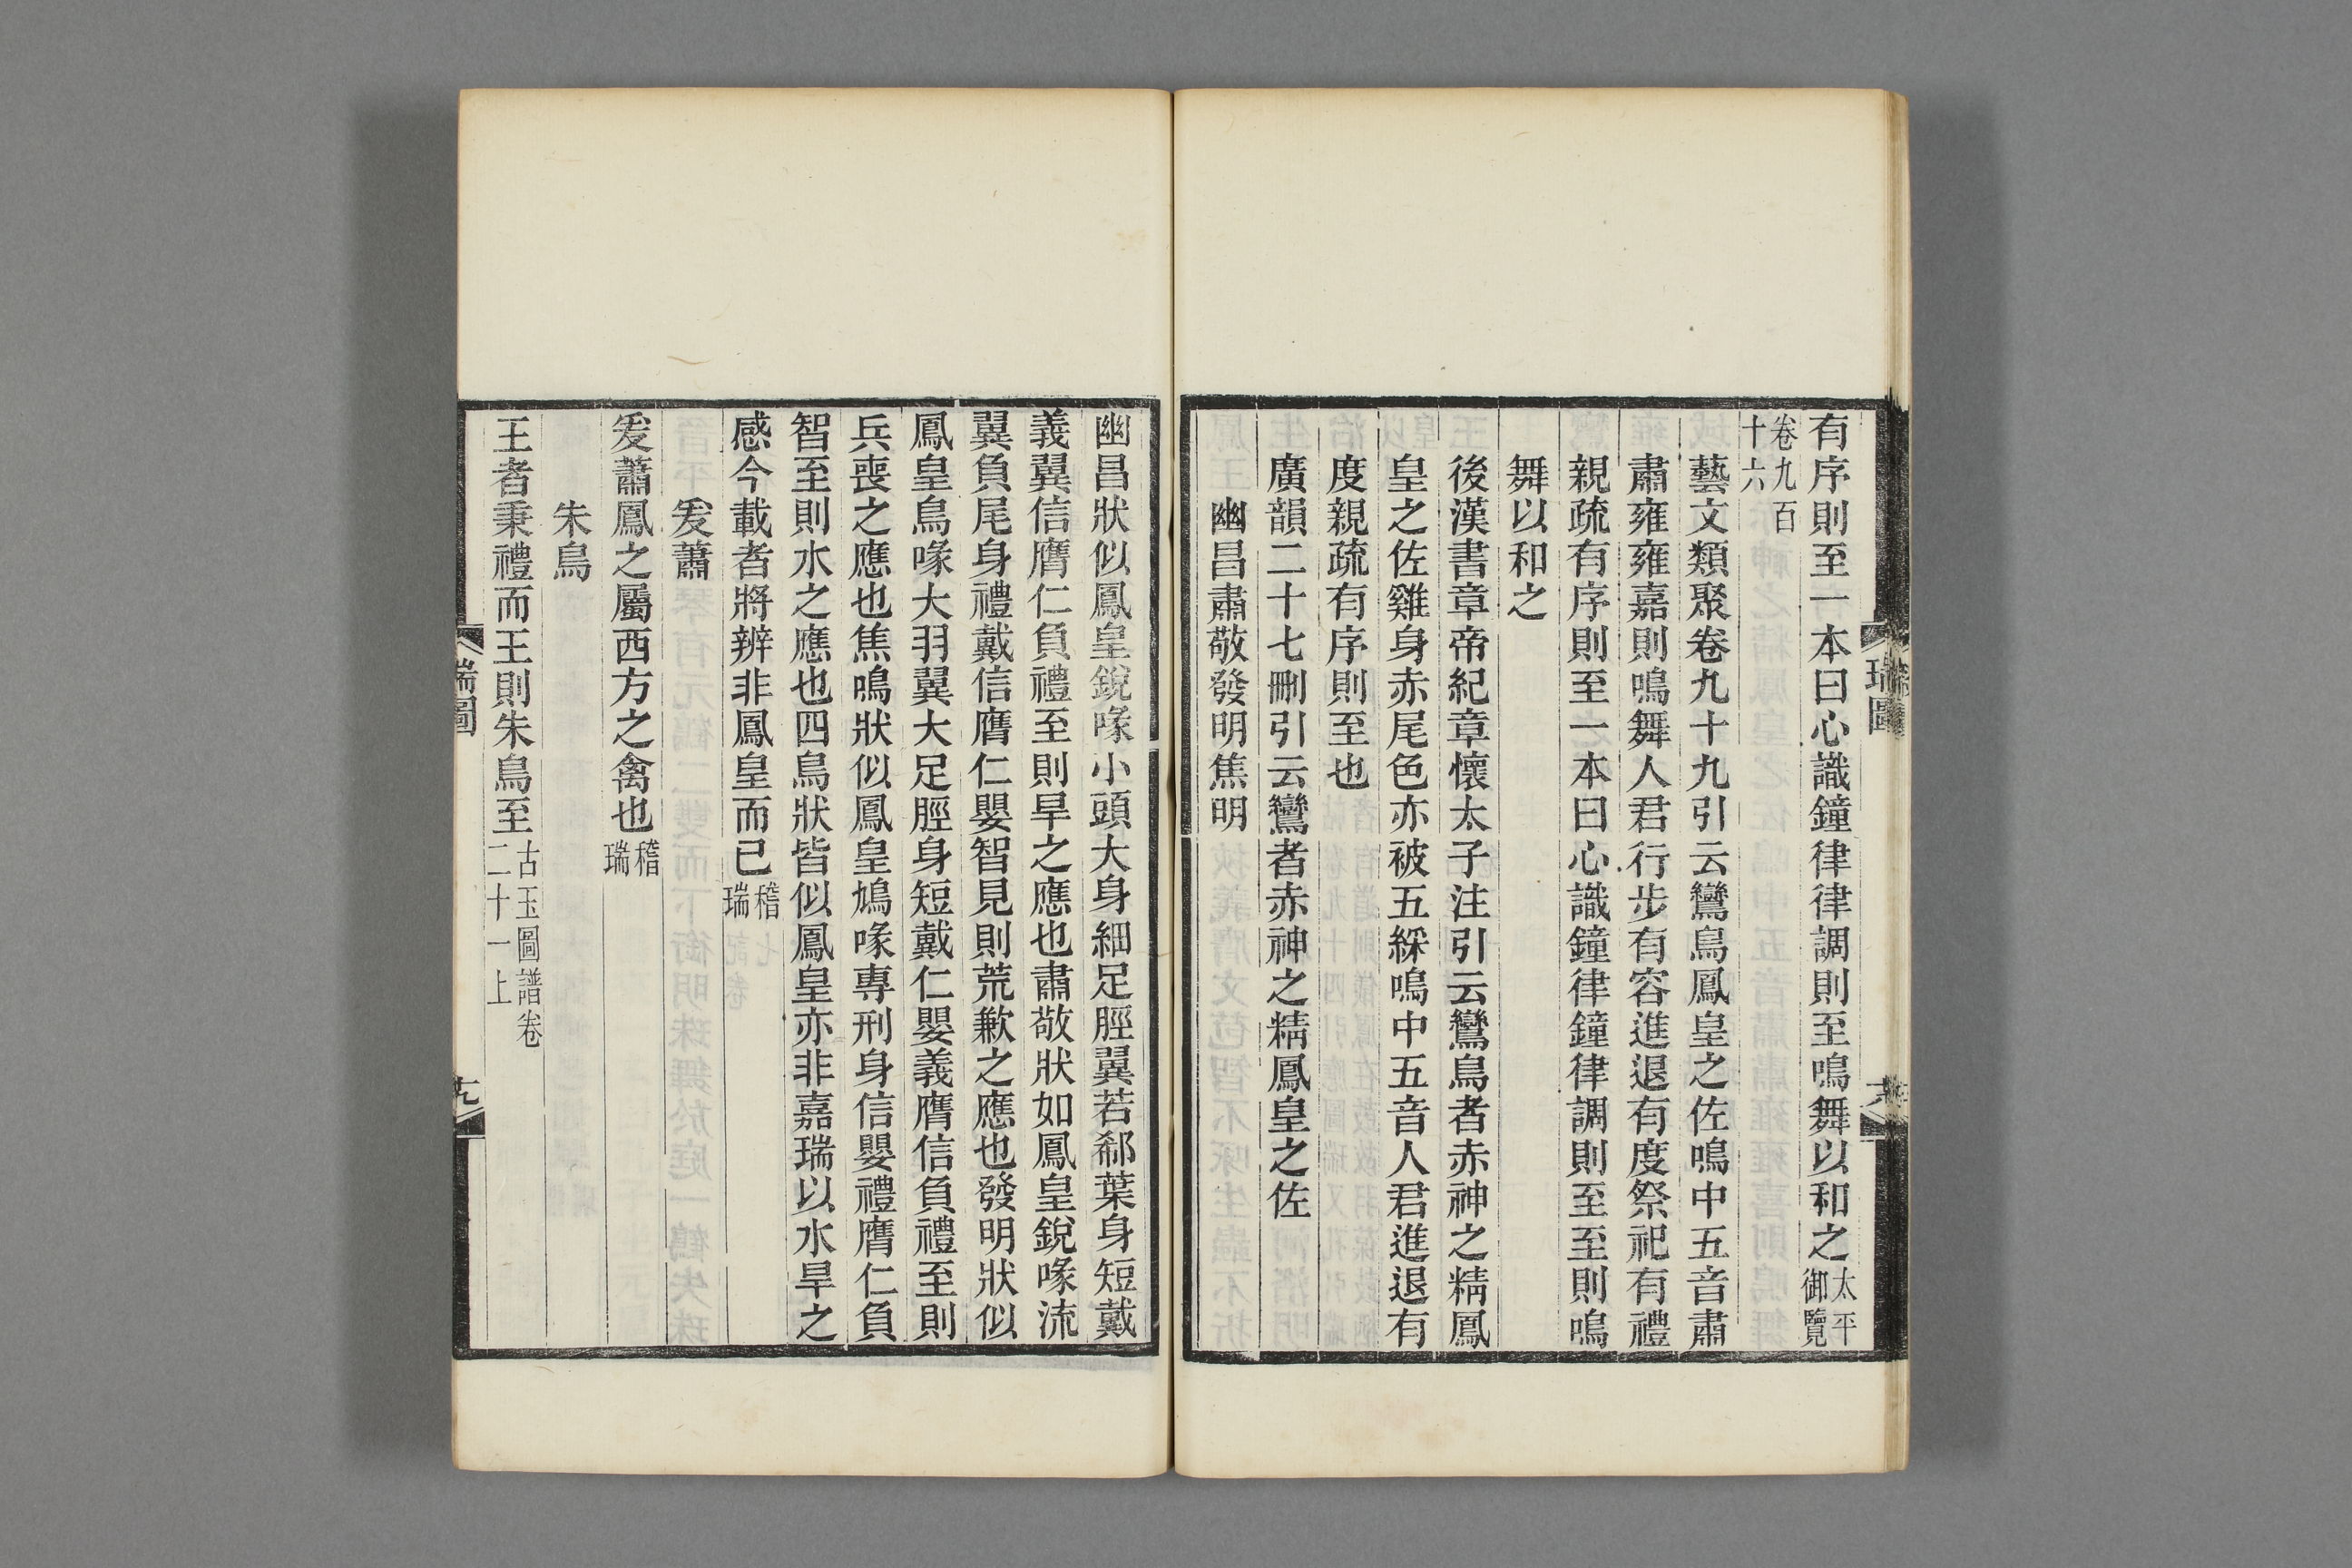 有序則至一本曰心識鐘律律調則至鳴舞以和之太平御覽
卷九百十六
藝文類聚卷九十九引云鸞鳥鳳皇之佐鳴中五音肅
肅雍雍嘉則鳴舞人君行步有容進退有度祭祀有禮
親疏有序則至一本曰心識鐘律鐘律調則至至則鳴
舞以和之
後漢書章帝紀章懷太子注引云鸞鳥者赤神之精鳳
皇之佐雞身赤尾色亦被五綵鳴中五音人君進退有
度親疏有序則至也
廣韻二十七刪引云鸞者赤神之精鳳皇之佐
幽昌肅敬發明焦明
幽昌狀似鳳皇銳喙小頭大身細足脛翼若郄葉身短戴
義翼信膺仁負禮至則旱之應也肅敬狀如鳳皇銳喙流
翼負尾身禮戴信膺仁嬰智見則荒歉之應也發明狀似
鳳皇鳥喙大羽翼大足脛身短戴仁嬰義膺信負禮至則
兵喪之應也焦鳴狀似鳳皇鳩喙專刑身信嬰禮膺仁負
智至則水之應也四鳥狀皆似鳳皇亦非嘉瑞以水旱之
感今載者將辨非鳳皇而已稽瑞
爰蕭
爰蕭鳳之屬西方之禽也稽瑞
朱鳥
王者秉禮而王則朱鳥至古玉圖譜卷二十一上
瑞圖
十九